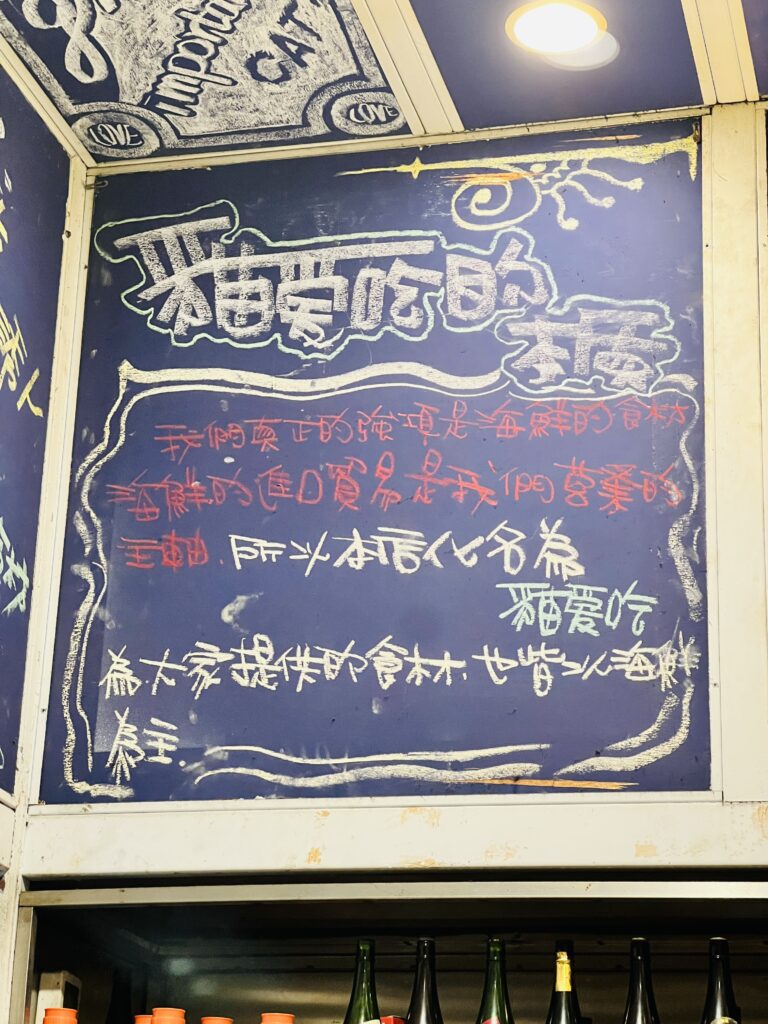 important
CAT
LOVE
LOVE
貓爱吃的
本質
我們真正的強項是海鮮的食材
海鮮的進口貿易是我們營業的
主軸.所以本店化名為
貓爱吃
為大家提供的食材.也皆以海鮮
為主.